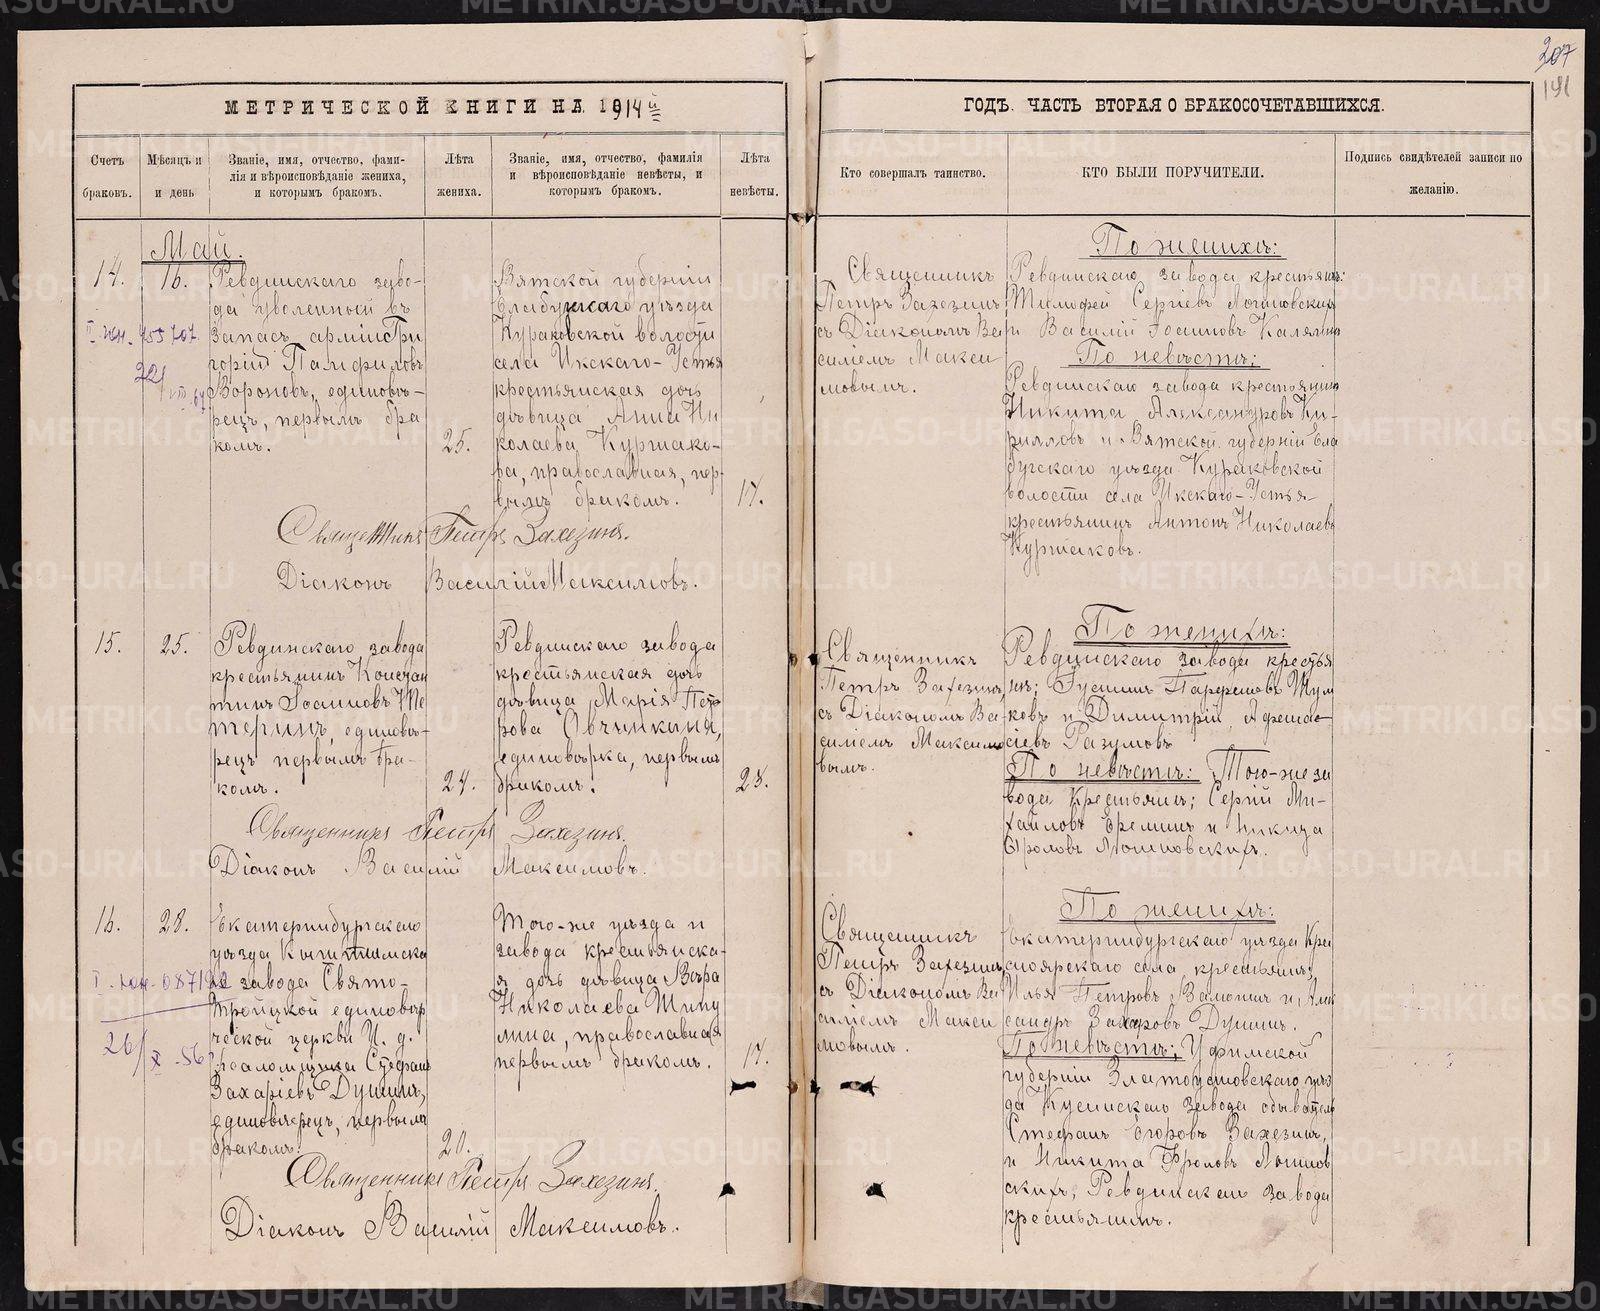 207
191
МЕТРИЧЕСКОЙ КНИГИ НА 1914й
ГОДЪ. ЧАСТЬ ВТОРАЯ О БРАКОСОЧЕТАВШИХСЯ.
Счетъ
браковъ.
Мѣсяцъ и
и день
Званіе, имя, отчество, фами-
лія и вѣроисповѣданіе жениха,
и которымъ бракомъ.
Лѣта
жениха.
Званіе, имя, отчество, фамилія
и вѣроисповѣданіе невѣсты, и
которымъ бракомъ.
Лѣта
невѣсты.
Кто совершалъ таинство.
КТО БЫЛИ ПОРУЧИТЕЛИ.
Подпись свидѣтелей записи по
желанію.
Май.
14.
16.
Ревдинскаго заво-
да уволенный въ
запасъ арміи Гри
горій Памфиловъ
Вороновъ, единовѣ-
рецъ, первымъ бра
комъ.
25.
Вятской губерніи
Елабужскаго уѣзда
Кураковской волости
села Икскаго-Устья
крестьянская дочь
дѣвица Анна Ни
колаева Куршако-
ва, православная, пер-
вымъ бракомъ.
17.
Священникъ
Петръ Захезинъ
съ Діакономъ Ва
силіемъ Макси
мовымъ.
По женихѣ:
Ревдинскаго завода крестьяне:
Тимофей Сергіевъ Логиновскихъ
и Василій Іосифовъ Калягинъ
По невѣстѣ:
Ревдинскаго завода крестьянинъ
Никита Александровъ Ки-
рилловъ и Вятской губерніи Ела
бужскаго уѣзда Кураковской
волости села Икскаго-Устья
крестьянинъ Антонъ Николаевъ
Куршаковъ.
755707
Священникъ Петръ Захезинъ.
Діаконъ Василій Максимовъ.
15.
25.
Ревдинскаго завода
крестьянинъ Констан
тинъ Іосифовъ Те
теринъ, единовѣ-
рецъ первымъ бра-
комъ.
24.
Ревдинскаго завода
крестьянская дочь
дѣвица Марія Пет
рова Овчинкина,
единовѣрка, первымъ
бракомъ.
23.
Священникъ
Петръ Захезинъ,
съ Діакономъ Ва-
силіемъ Максимо
вымъ.
По женихѣ:
Ревдинскаго завода крестья
не; Іустинъ Парфеновъ Шум
ковъ и Димитрій Афанас-
сіевъ Разумовъ
По невѣстѣ: Того-же за
вода крестьяне; Сергій Ми-
хайловъ Ереминъ и Никита
Фроловъ Логиновскихъ.
Священникъ Петръ Захезинъ.
Діаконъ Василій Максимовъ.
16.
28.
Екатеринбургскаго
уѣзда Кыштымска
го завода Свято-
Троицкой единовѣр
ческой церкви И. д.
псаломщика Стефанъ
Захаріевъ Душинъ,
единовѣрецъ, первымъ
бракомъ.
20.
Того-же уѣзда и
завода крестьянска-
я дочь дѣвица Вѣра
Николаева Шику
лина, православная
первымъ бракомъ.
17.
Священникъ
Петръ Захезинъ,
съ Діакономъ Ва
силіемъ Макси
мовымъ.
По женихѣ:
Екатеринбургскаго уѣзда Кра
сноярскаго села крестьяне;
Илья Петровъ Замошин и Алек
сандръ Захаровъ Душинъ.
По невѣстѣ; Уфимской
губерніи Златоустовскаго уѣз
да Кусинскаго завода обыватель
Стефанъ Егоровъ Захезинъ,
и Никита Фроловъ Логинов
скихъ, Ревдинскаго завода
крестьянинъ.
087192
Священникъ Петръ Захезинъ.
Діаконъ Василій Максимовъ.
METRIKI.GASO-URAL.RU